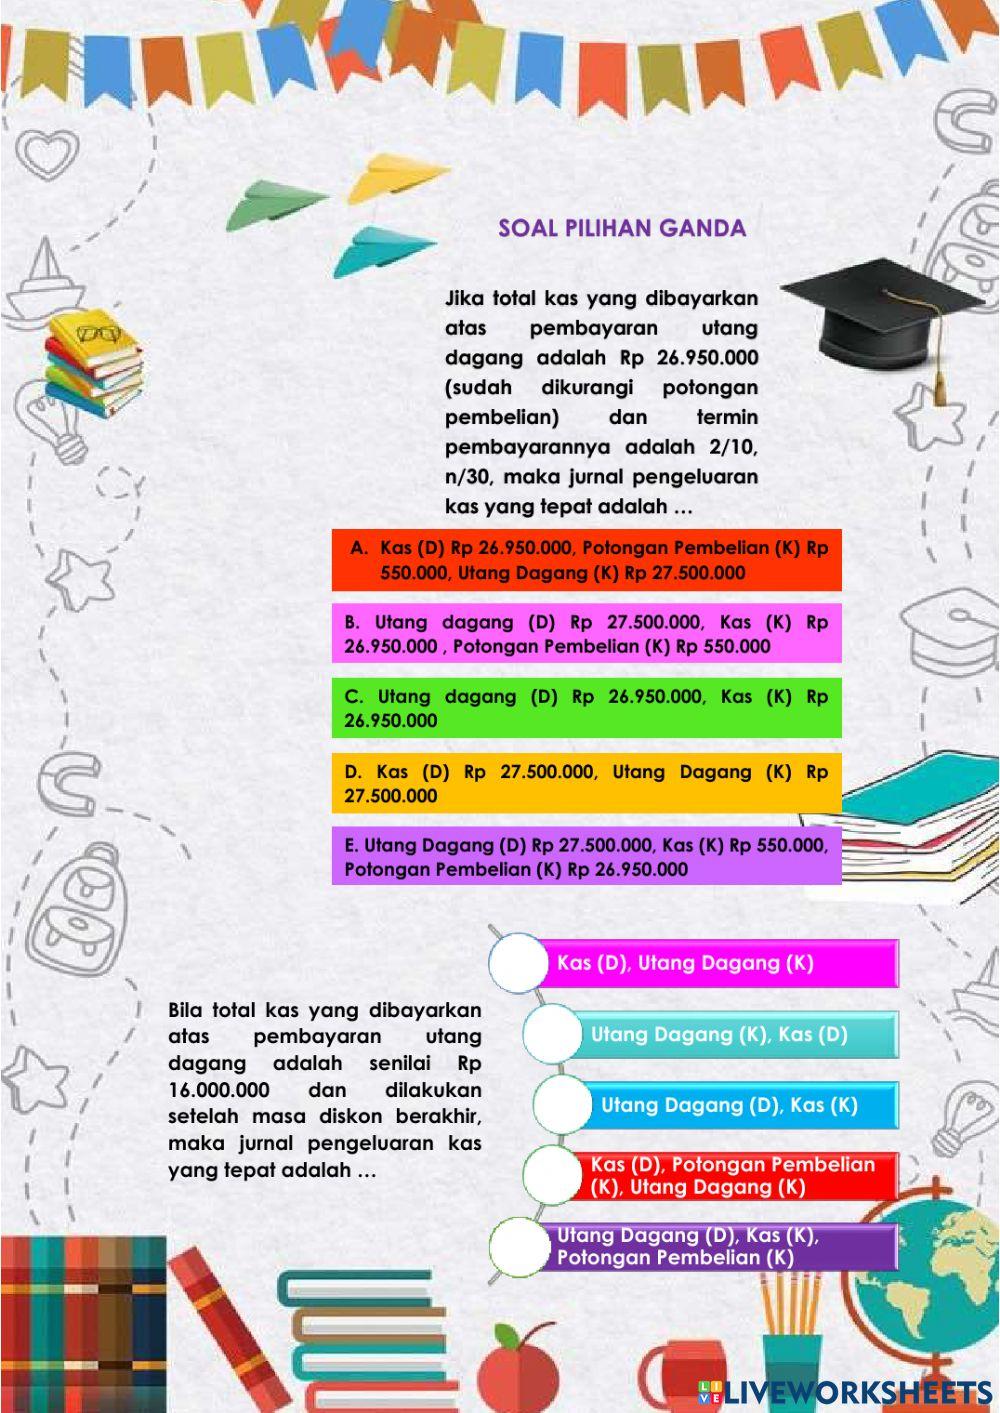 SOAL PILIHAN GANDA
Jika total kas yang dibayarkan
atas pembayaran utang
dagang adalah Rp 26.950.000
(sudah dikurangi potongan
pembelian) dan termin
pembayarannya adalah 2/10,
n/30, maka jurnal pengeluaran
kas yang tepat adalah ...
A. Kas (D) Rp 26.950.000, Potongan Pembelian (K) Rp
550.000, Utang Dagang (K) Rp 27.500.000
B. Utang dagang (D) Rp 27.500.000, Kas (K) Rp
26.950.000 , Potongan Pembelian (K) Rp 550.000
C. Utang dagang (D) Rp 26.950.000, Kas (K) Rp
26.950.000
D. Kas (D) Rp 27.500.000, Utang Dagang (K) Rp
27.500.000
E. Utang Dagang (D) Rp 27.500.000, Kas (K) Rp 550.000,
Potongan Pembelian (K) Rp 26.950.000
Bila total kas yang dibayarkan
atas pembayaran utang
dagang adalah senilai Rp
16.000.000 dan dilakukan
setelah masa diskon berakhir,
maka jurnal pengeluaran kas
yang tepat adalah ...
Kas (D), Utang Dagang (K)
Utang Dagang (K), Kas (D)
Utang Dagang (D), Kas (K)
Kas (D), Potongan Pembelian
(K), Utang Dagang (K)
Utang Dagang (D), Kas (K),
Potongan Pembelian (K)
LIVE LIVEWORKSHEETS